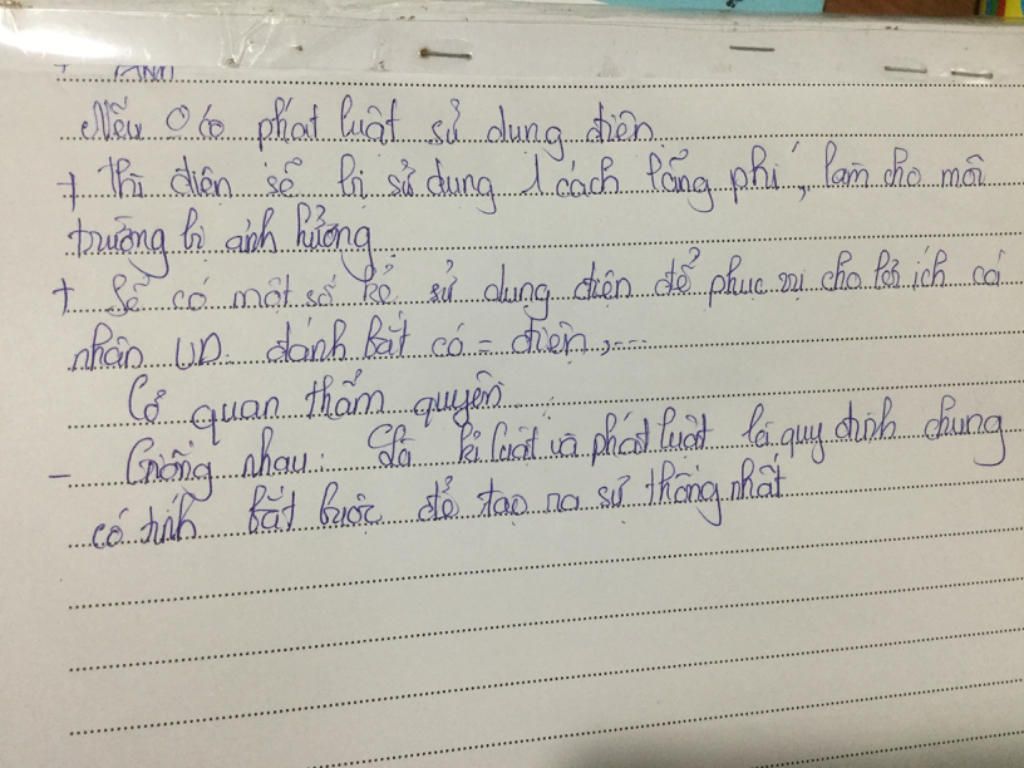 Nếu 0 có phát luật sử dụng điện
+ Thì điện sẽ bị sử dụng 1 cách lãng phí, làm cho môi
trường bị ảnh hưởng
+ Sẽ có một số kẻ sử dụng điện để phục vụ cho lợi ích cá
nhân VD. đánh bắt cá = điện,....
Cơ quan thẩm quyền
- Giống nhau: Cả kỉ luật và phát luật là quy định chung
có tính bắt buộc để tạo ra sự thống nhất